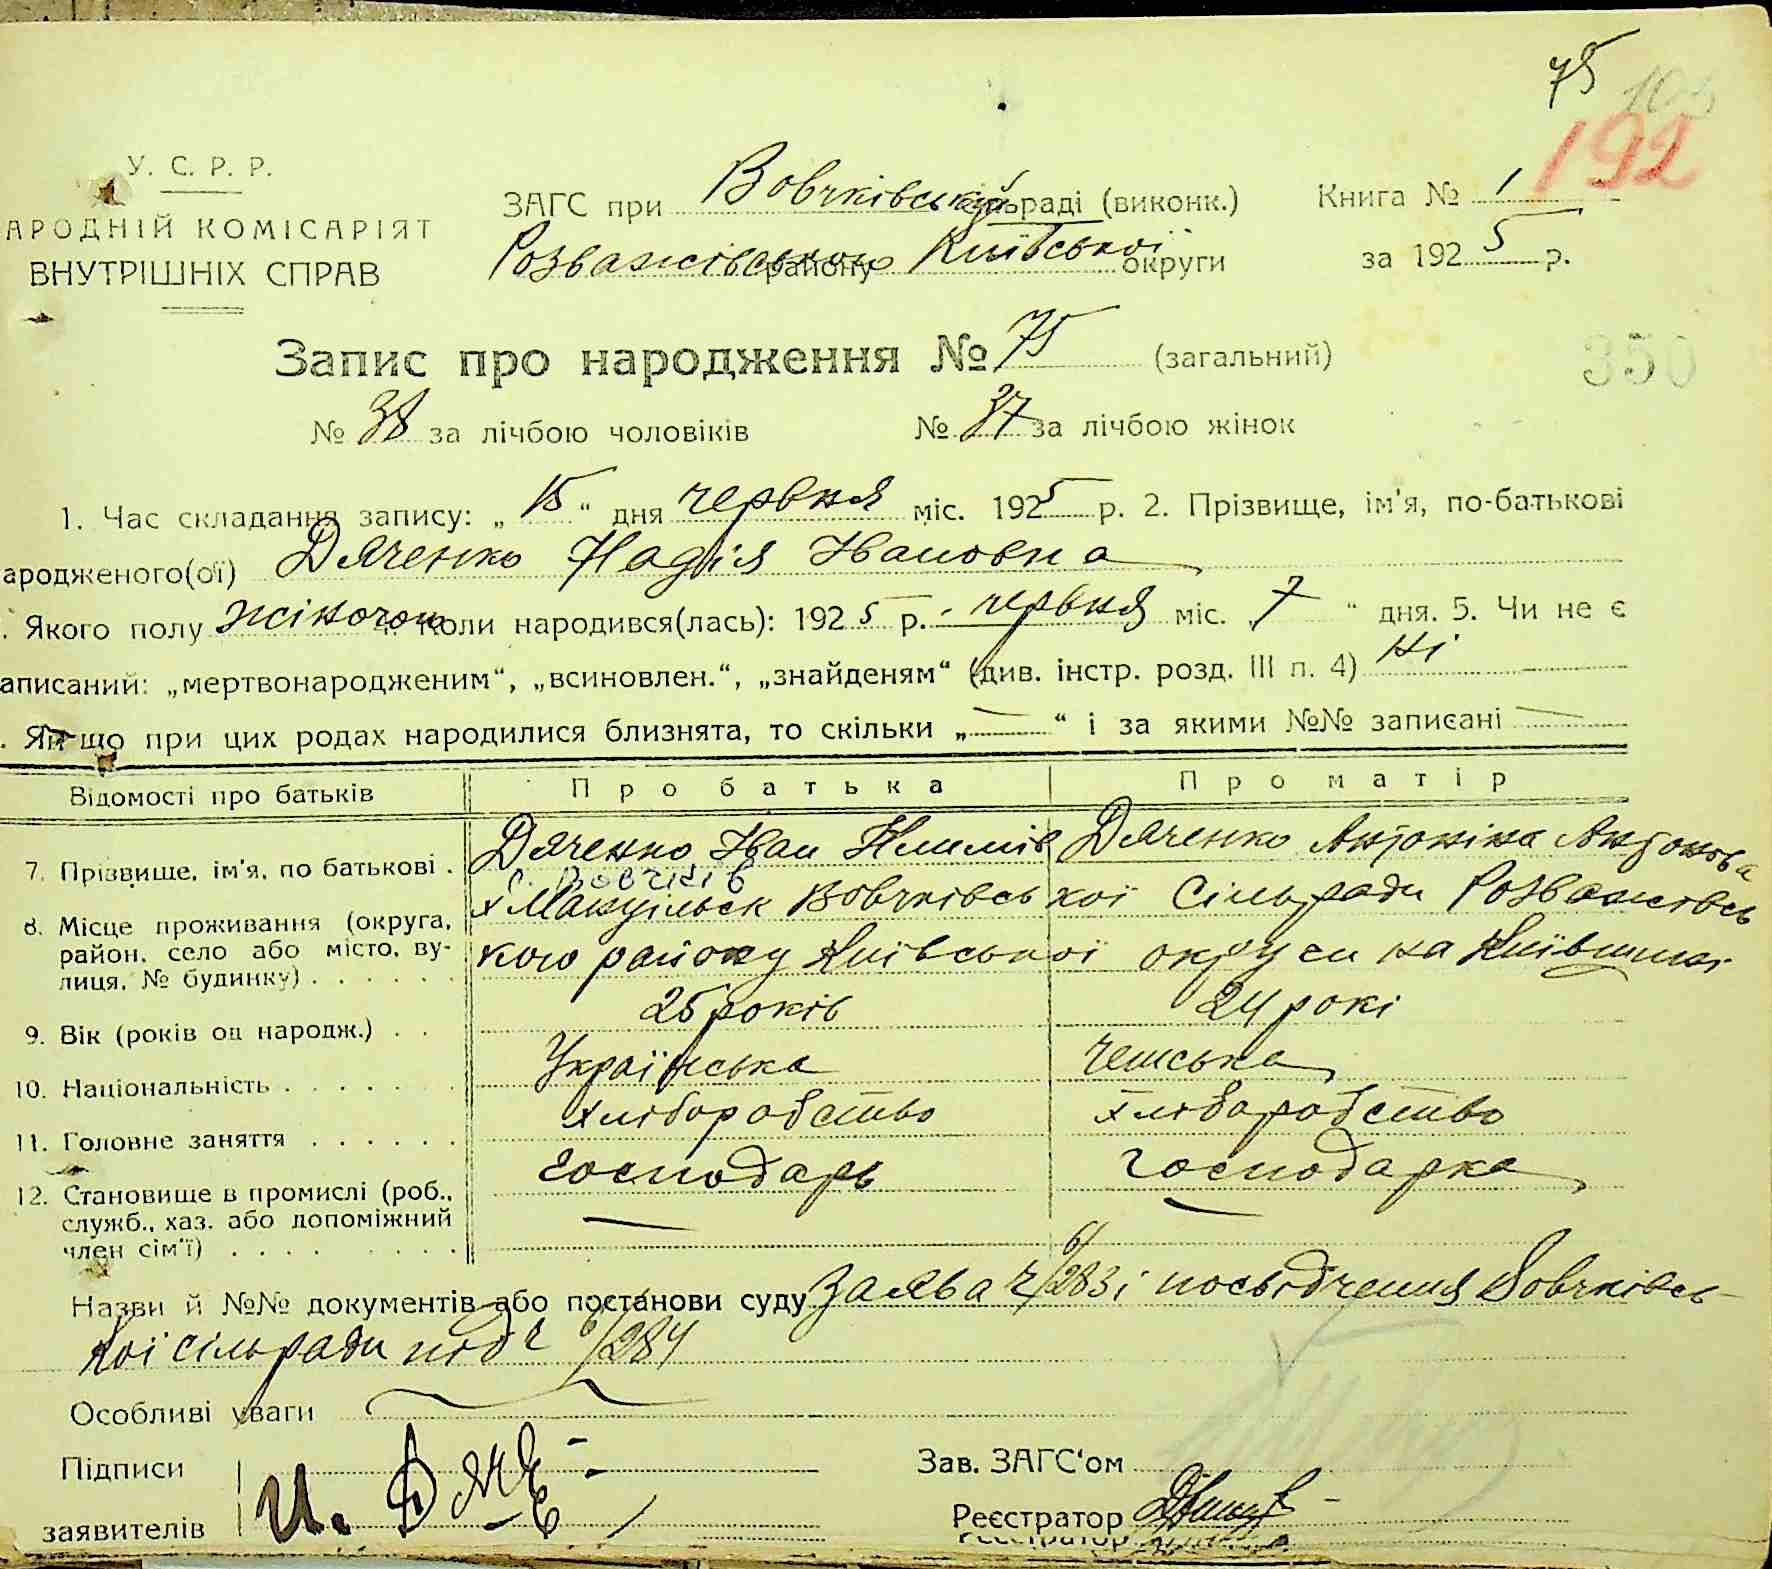 75
192
У. С. Р. Р.
АРОДНІЙ КОМІСАРІЯТ
ВНУТРІШНІХ СПРАВ
ЗАГС при Вовчківській сільраді (виконк.)
Розважівського району Київської округи
Книга № 1
за 1925 р.
Запис про народження № 75 (загальний)
350
№ 38 за лічбою чоловіків № 37 за лічбою жінок
1. Час складання запису: „15“ дня червня міс. 1925 р. 2. Прізвище, ім'я, по-батькові
ародженого(ої) Дяченко Надія Івановна
. Якого полу жіночого 4. Коли народився(лась): 1925 р. червня міс. 7 “ дня. 5. Чи не є
аписаний: „мертвонародженим“, „всиновлен.“, „знайденям“ (див. інстр. розд. III п. 4) Ні
. Якщо при цих родах народилися близнята, то скільки „—“ і за якими №№ записані —
Відомості про батьків Про батька Про матір
7. Прізвище, ім'я, по батькові . Дяченко Іван Климів Дяченко Антоніна Антонова
с. Вовчків
8. Місце проживання (округа, район, село або місто, вулиця, № будинку) х Мануільск Вовчківської Сільради Розважівсь
кого району Київської округи на Київщині
9. Вік (років од народж.) . . 25 років 24 рокі
10. Національність Українська Чешська
11. Головне заняття хліборобство хліборобство
12. Становище в промислі (роб., господарь господарка
служб., хаз. або допоміжний
член сім'ї)
Назви й №№ документів або постанови суду Заява ч 6/283 і посьвідчення Вовчківсь
кої сільради під ч 6/284
Особливі уваги
Підписи
заявителів И. Дяче
Зав. ЗАГС'ом
Реєстратор